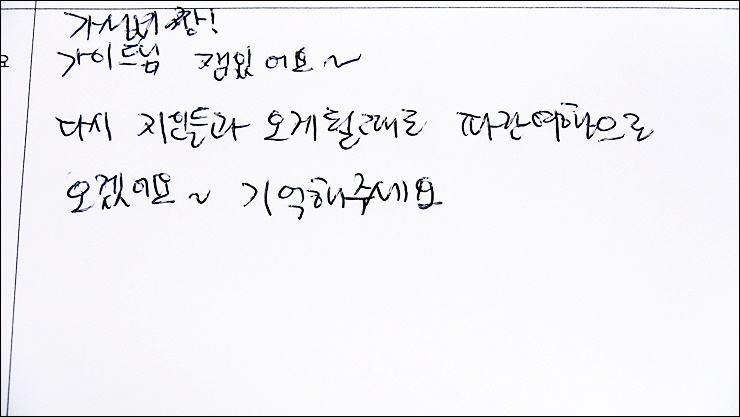 가성비 짱!
가이드님 잼있어요~
다시 지인들과 오게될때도 파란여행으로
오겠어요~ 기억해주세요